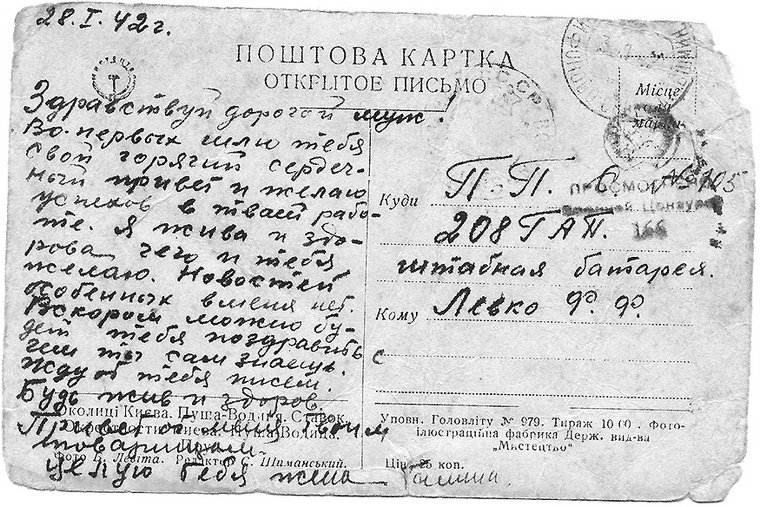 28.I.42г.
ПОШТОВА КАРТКА
ОТКРЫТОЕ ПИСЬМО
Здравствуй дорогой муж!
Во-первых шлю тебя
свой горячий сердеч-
ный привет и желаю
успехов в тваей рабо-
те. Я жива и здо-
рова чего и тебя
желаю. Новостей
особенных вменя нет.
Вскором можно бу-
дет тебя поздравить
чем ты сам знаешь.
Жду от тебя писем.
Будь жив и здоров.
Привет от меня твоим
товарищам
целую тебя жена
Околиці Києва. Пуща-Водиця. Ставок.
Киева. Пуща-Водица.
Фото В. Левіта. Редактор Є. Шиманський.
Місце
для
марки
Куди П. П. С. №105
ПРОСМОТРЕНО
Военной Цензурой
166
208 ГАП.
штабная батарея.
Кому Левко Ф. Ф.
Уповн. Головліту № 979. Тираж 10 00. Фото-
ілюстраційна фабрика Держ. вид-ва
„Мистецтво“
Ціна 25 коп.